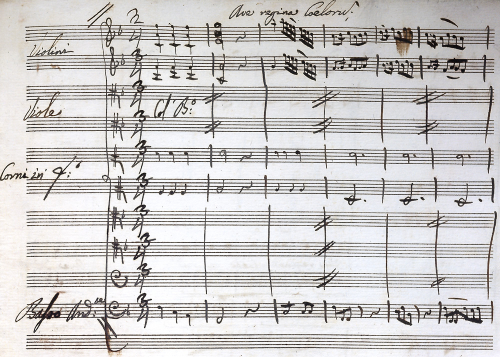 Ave regina Coelorum.
Violini
Viole
Col B.º
Corni in
Basso And.